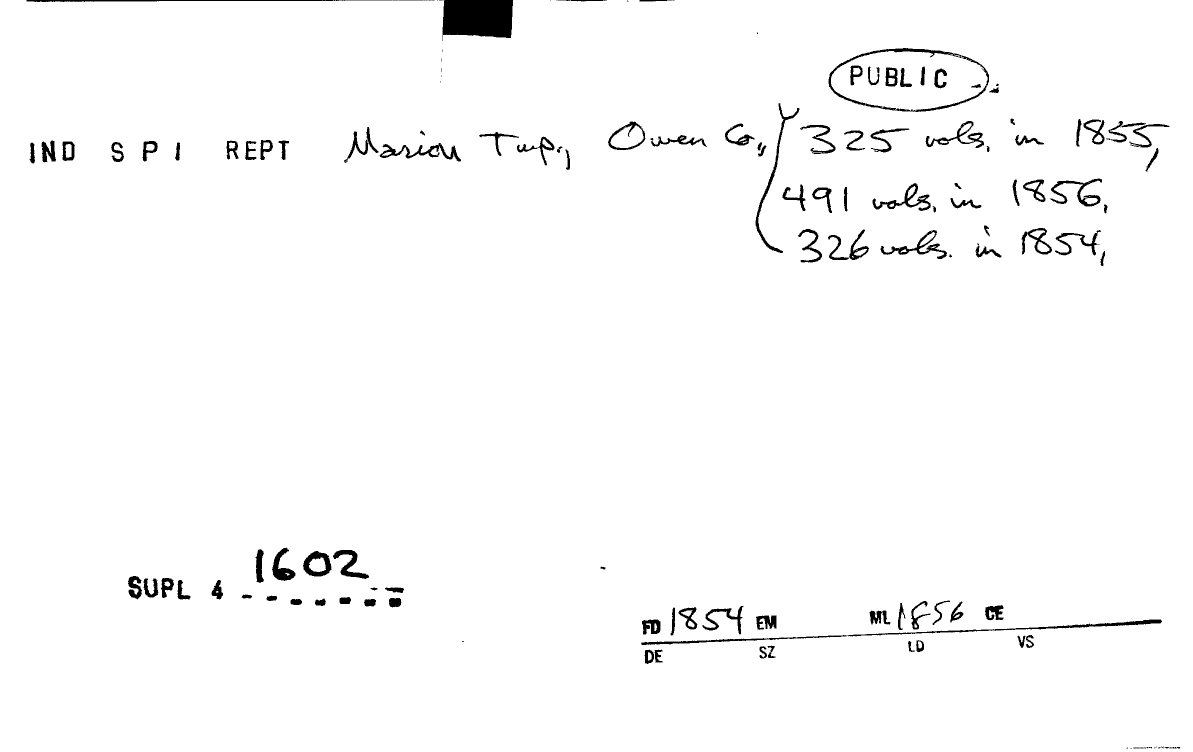 PUBLIC
IND S P I REPT Marion Twp., Owen Co., 325 vols. in 1855,
491 vols. in 1856,
326 vols. in 1854,
SUPL 4 1602
FD 1854 EM ML 1856 CE
DE SZ LD VS